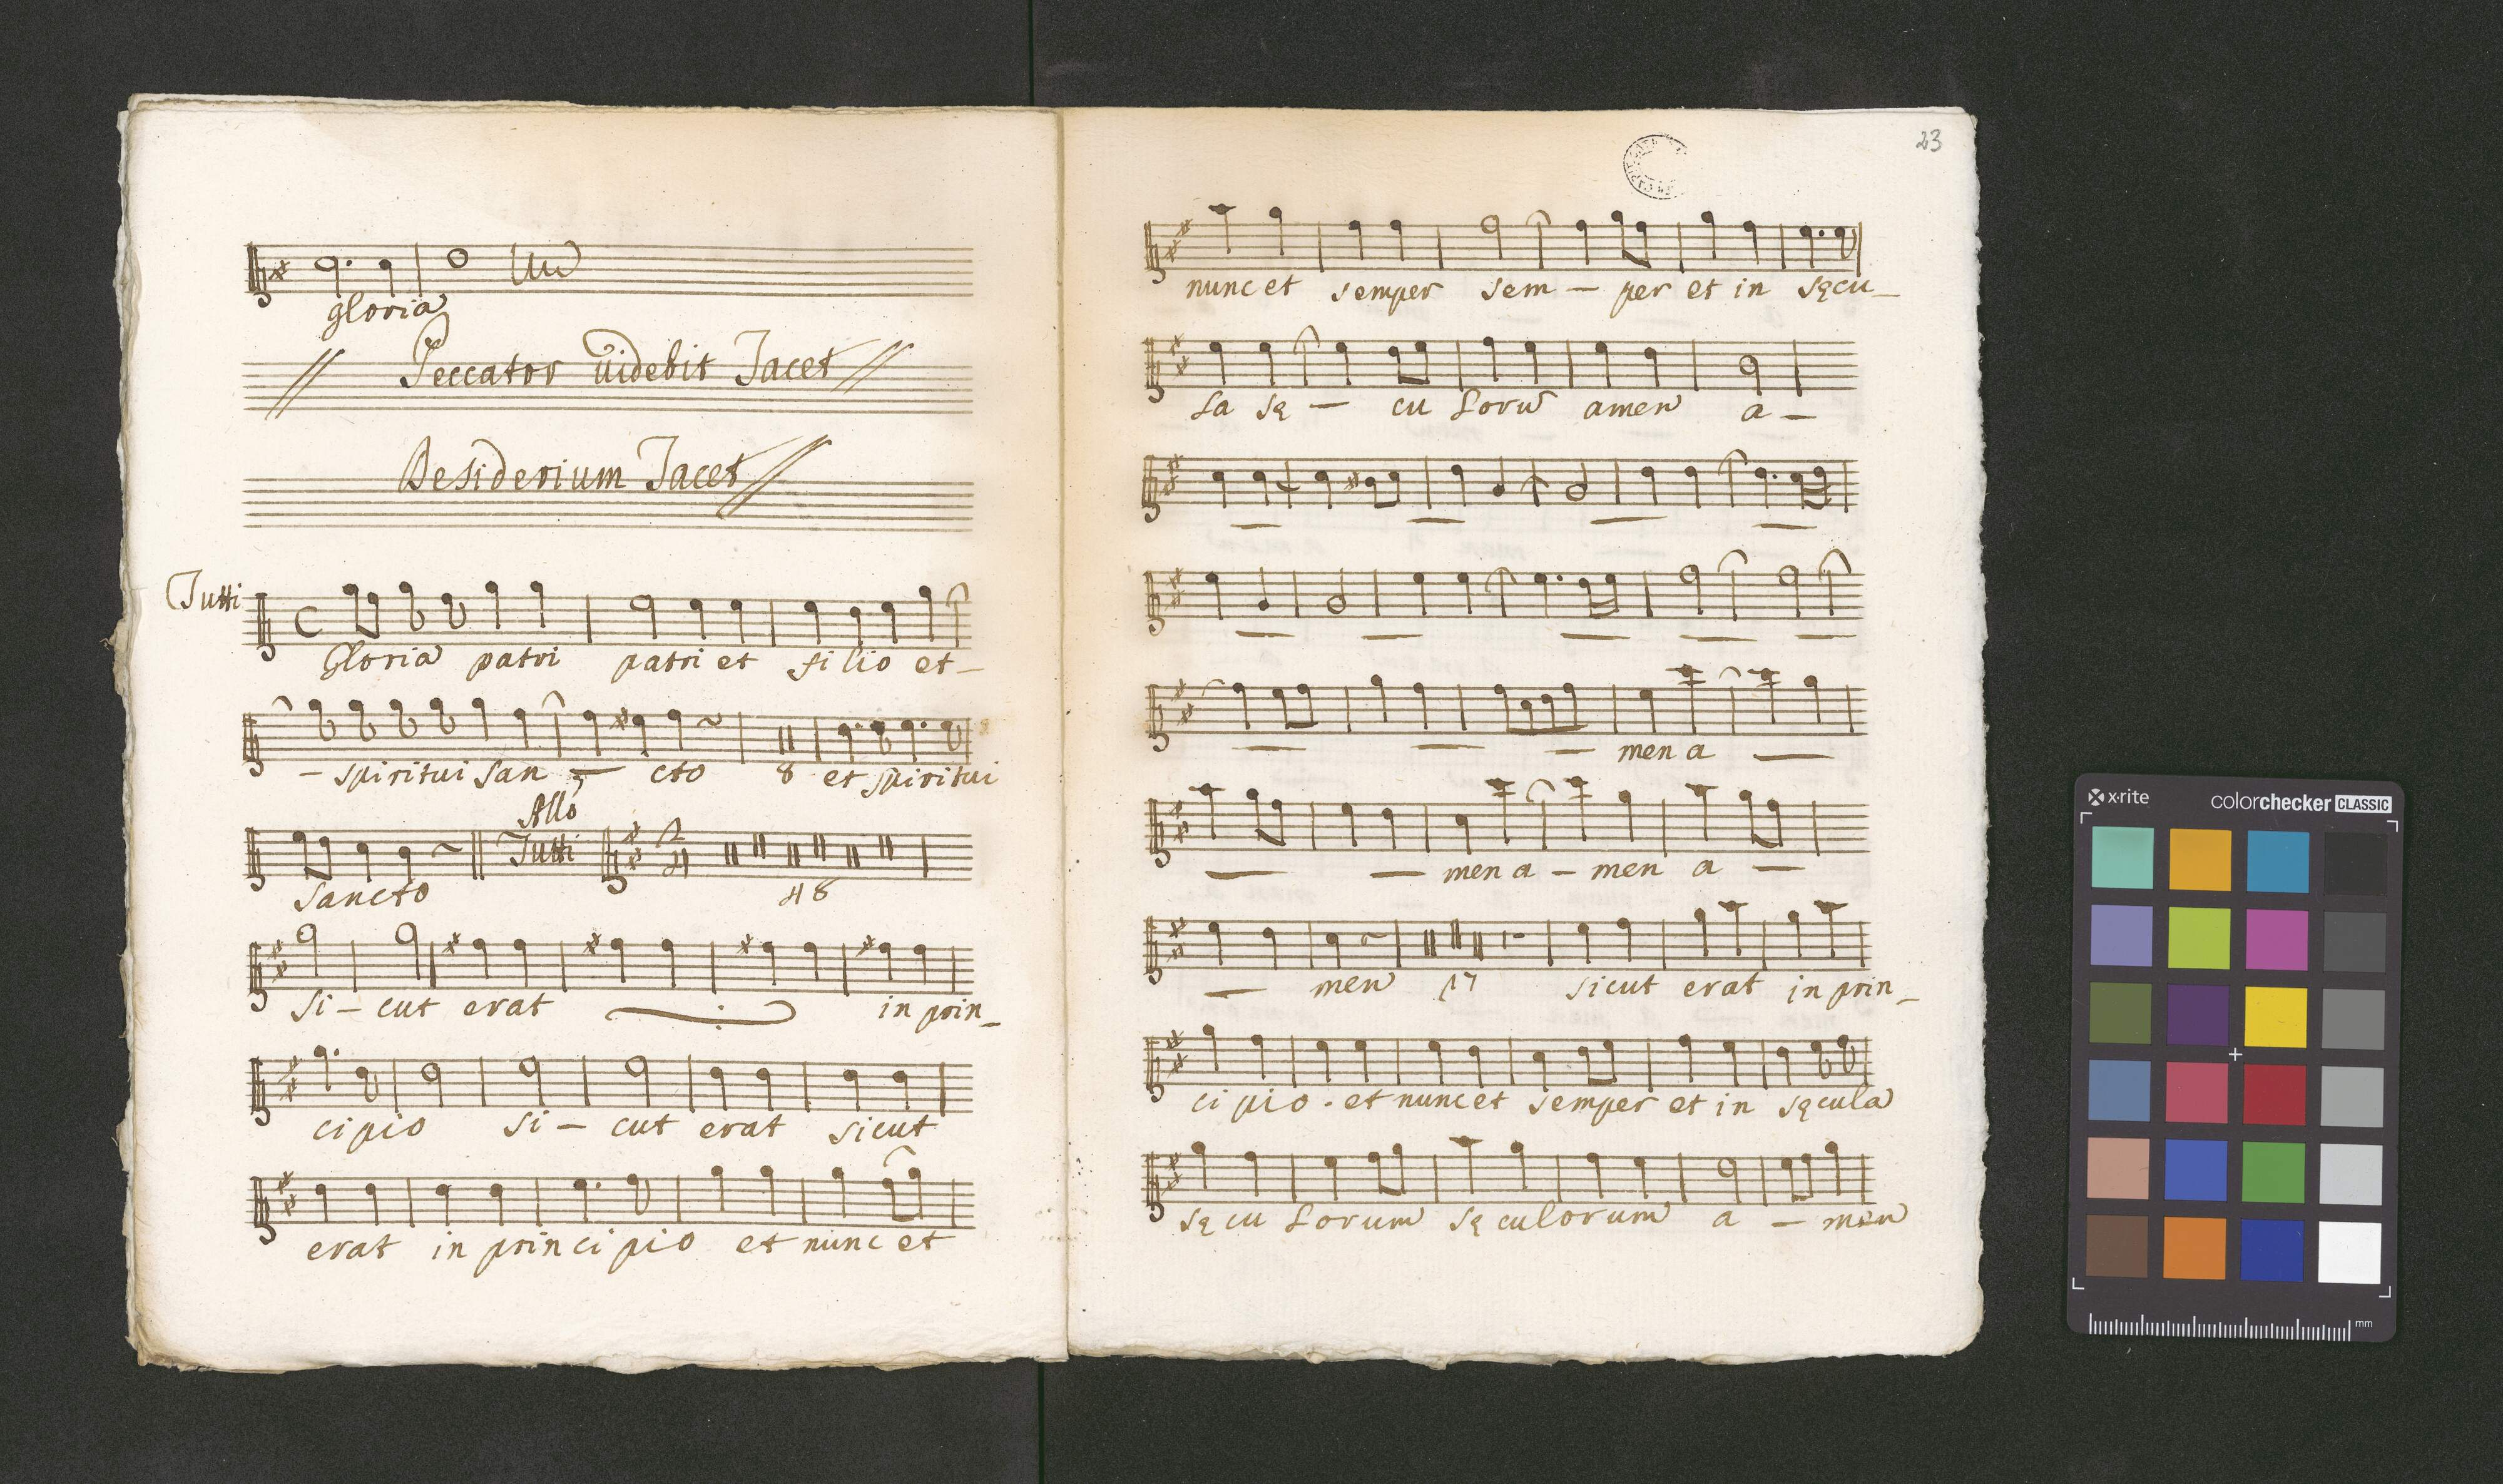 gloria
Peccator videbit Tacet
Desiderium Tacet
Tutti
Gloria patri patri et filio et_
- spiritui san - cto 8 et spiritui
Allo
Tutti
sancto 48
si - cut erat in prin_
cipio si - cut erat sicut
erat in principio et nunc et
23
nunc et semper sem - per et in sęcu_
la sę - cu lorum amen a -
men a -
men a - men a -
men 17 sicut erat in prin_
cipio. et nunc et semper et in sęcula
sę cu lorum sę culorum a - men
x·rite
colorchecker CLASSIC
mm